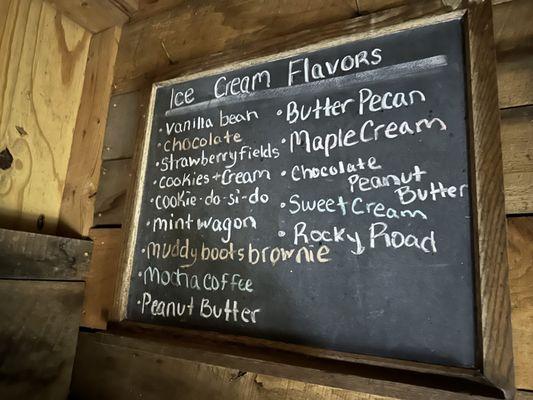 Ice Cream Flavors
• vanilla bean
• chocolate
• Strawberry fields
• cookies + Cream
• cookie-do-si-do
• mint wagon
• muddy boots brownie
• Mocha coffee
• Peanut Butter
• Butter Pecan
• Maple Cream
• Chocolate
Peanut
Butter
• Sweet Cream
• Rocky Road